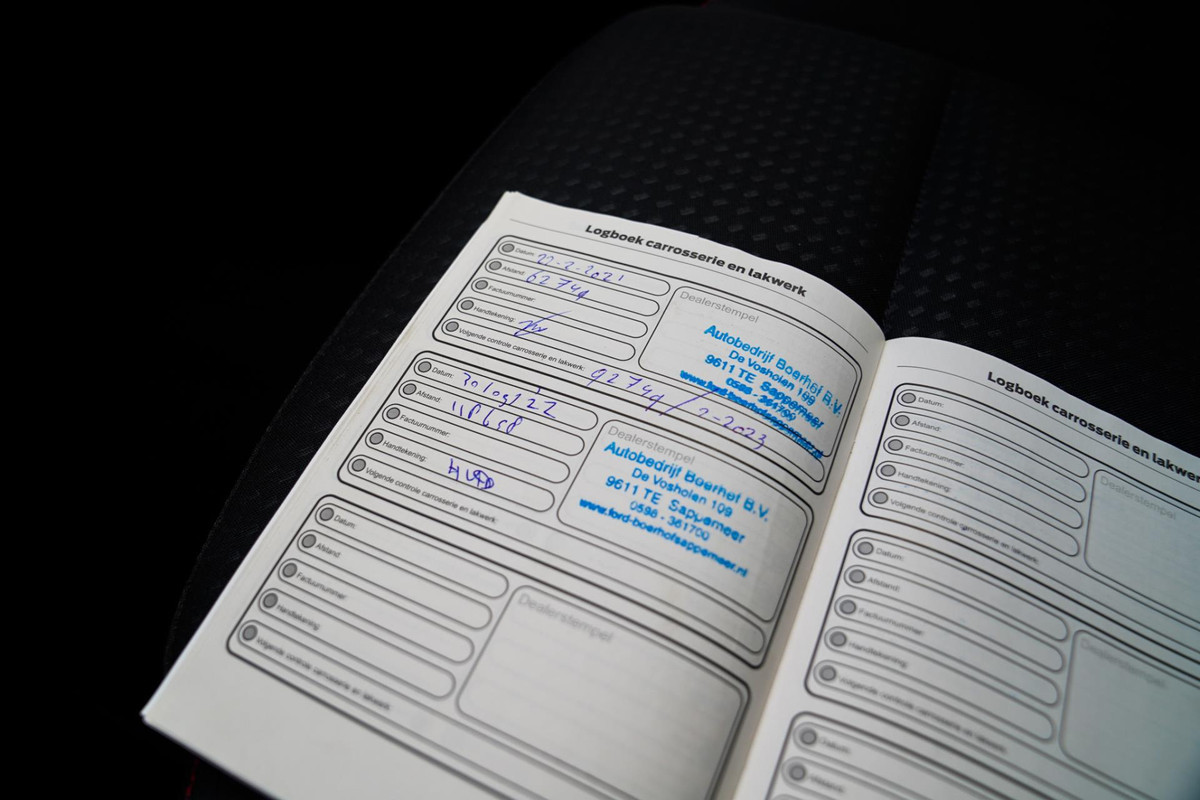 Logboek carrosserie en lakwerk
Datum: 22-2-2021
Afstand: 62749
Factuurnummer:
Handtekening:
Volgende controle carrosserie en lakwerk: 92749 / 2-2023
Dealerstempel
Autobedrijf Boerhof B.V.
De Vosholen 109
9611 TE Sappemeer
0598 - 361700
www.ford-boerhofsappemeer.nl
Datum:
Afstand:
Factuurnummer:
Handtekening:
Volgende controle carrosserie en lakwerk:
Dealerstempel
Autobedrijf Boerhof B.V.
De Vosholen 109
9611 TE Sappemeer
0598 - 361700
www.ford-boerhofsappemeer.nl
Datum:
Afstand:
Factuurnummer:
Handtekening:
Volgende controle carrosserie en lakwerk:
Dealerstempel
Logboek carrosserie en lakwerk
Datum:
Afstand:
Factuurnummer:
Handtekening:
Volgende controle carrosserie en lakwerk:
Dealerstempel
Datum:
Afstand:
Factuurnummer:
Handtekening:
Volgende controle carrosserie en lakwerk:
Dealerstempel
Datum:
Afstand: